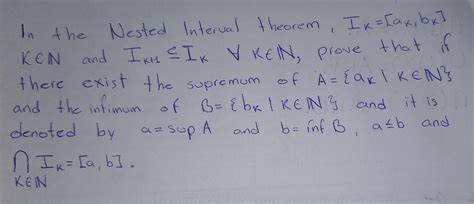 In the Nested Interval theorem, I_K=[a_K,b_K]
K∈ℕ and I_{K+1} ⊆ I_K ∀ K∈ℕ, prove that if
there exist the supremum of A={a_K | K∈ℕ}
and the infimum of B={b_K | K∈ℕ} and it is
denoted by a=sup A and b=inf B, a≤b and
⋂ I_K=[a,b].
K∈ℕ